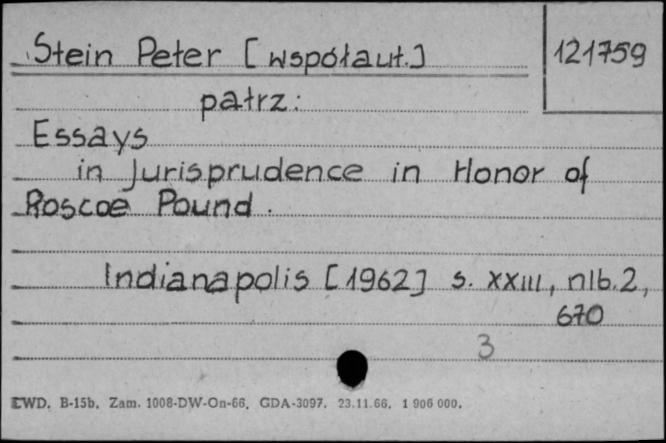 Stein Peter [współaut.] 121759
patrz:
Essays
in Jurisprudence in Honor of
Roscoe Pound.
Indianapolis [1962] s. XXIII, nlb. 2,
670
3
EWD. B-15b. Zam. 1008-DW-On-66. GDA-3097. 23.11.66. 1 906 000.